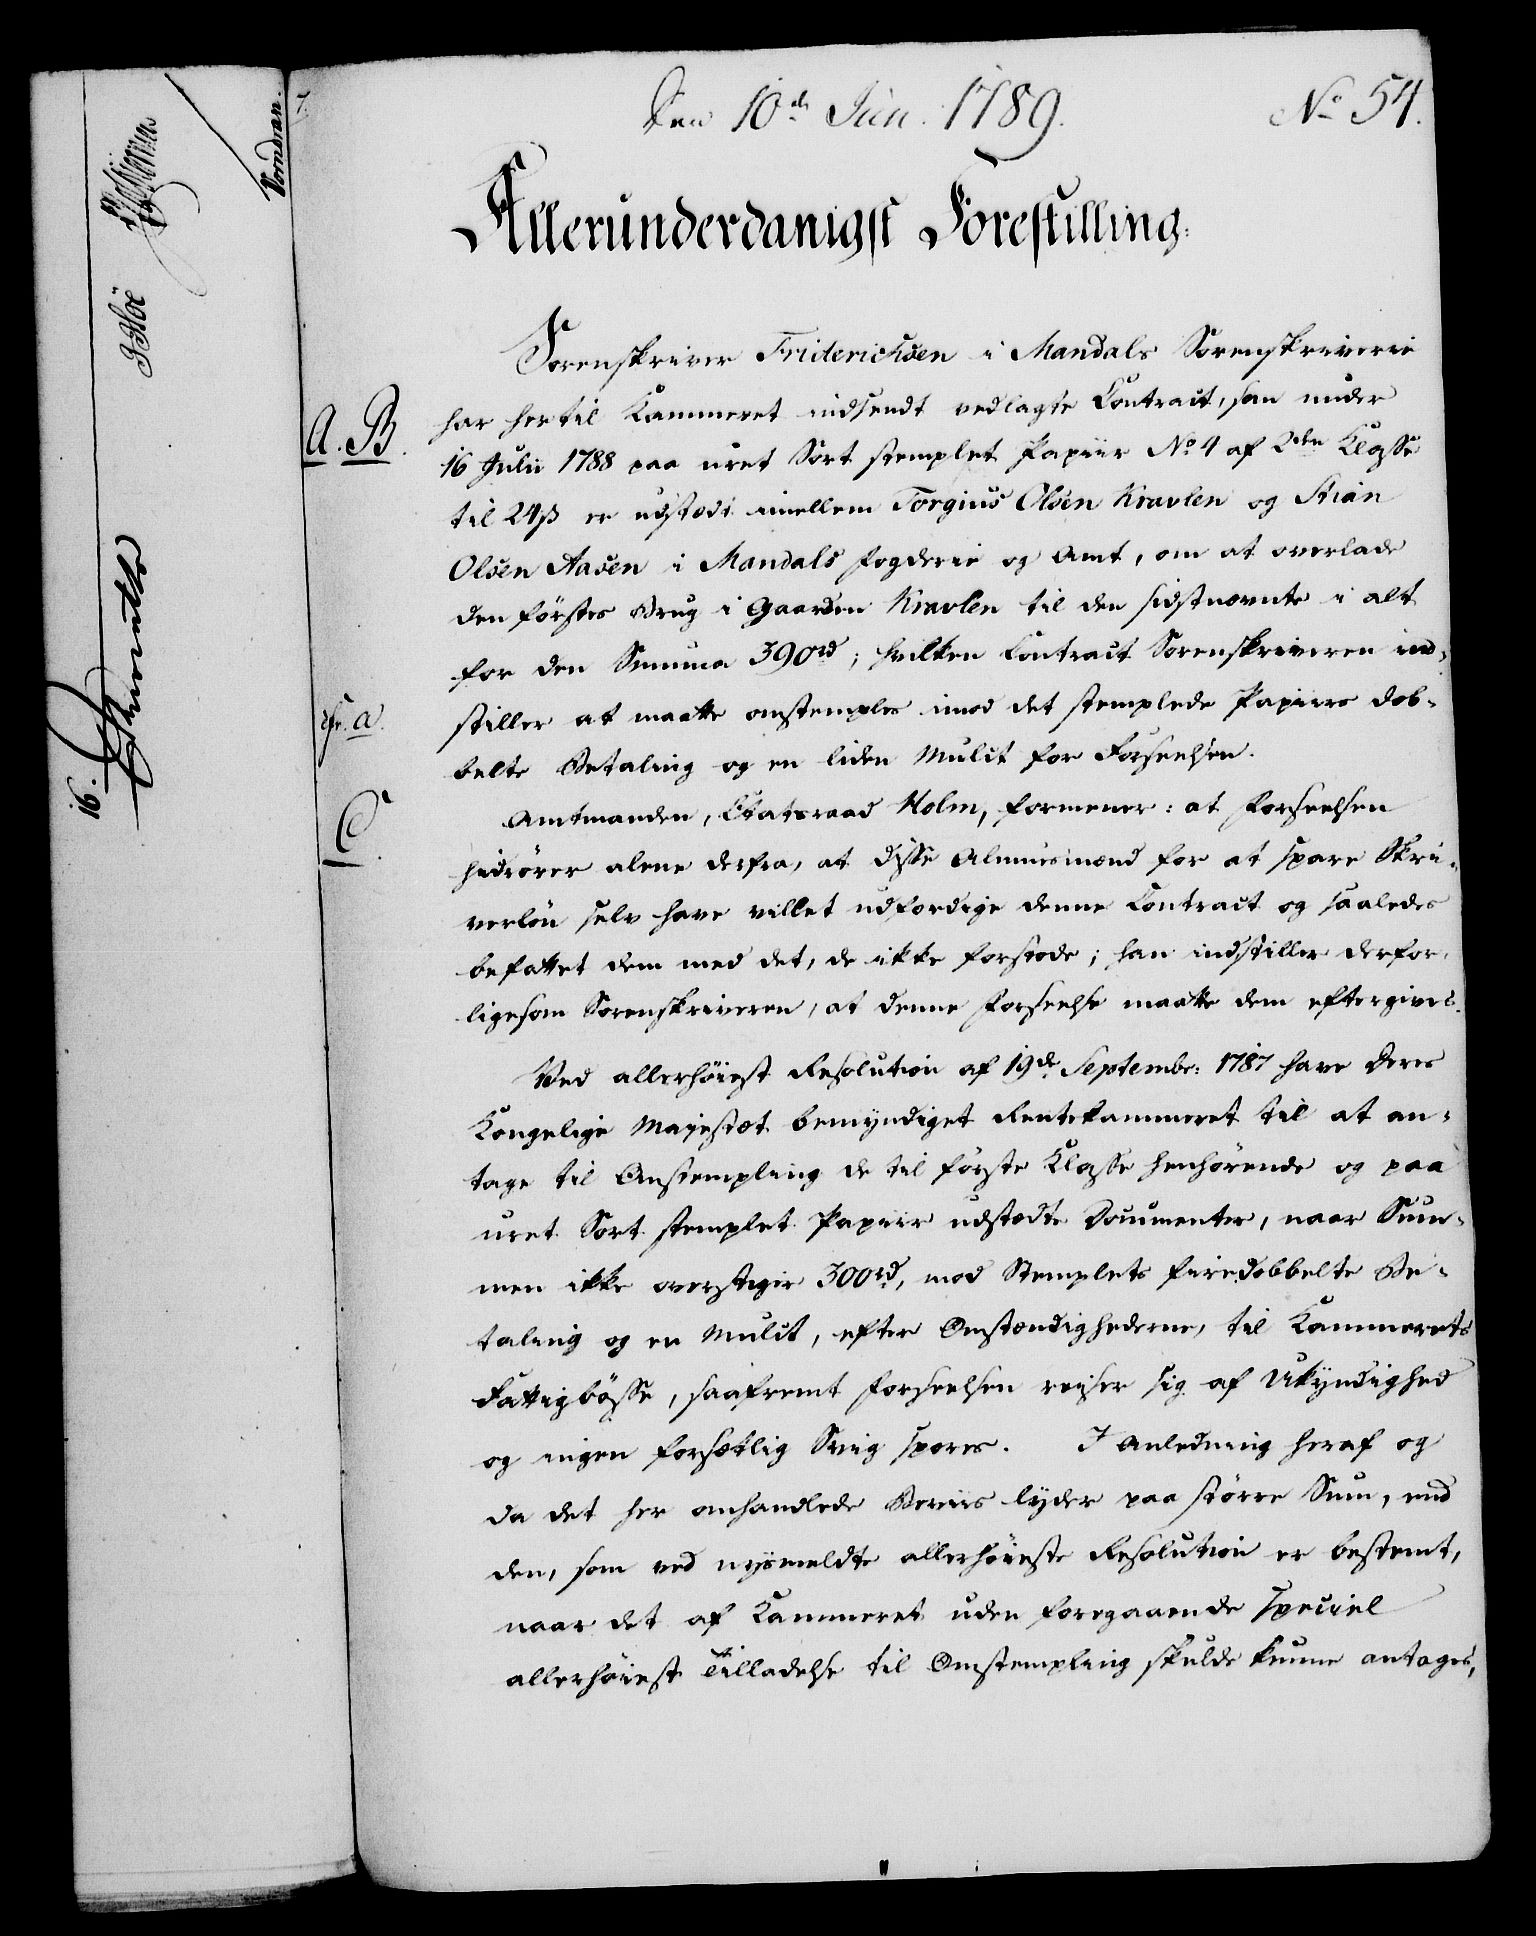 Den 10de Jun. 1789.
No 54.
Allerunderdanigst Forestilling.
Sorenskriver Friderichsen i Mandals Sorenskriverie
A. B. har hertil Kammeret indsendt vedlagte Contract, som under
16 Julii 1788 paa uret Sort stemplet Papiir No 4 af 2den Klasse
til 24 ß er udstædt imellem Torgius Olsen Kravlen og Stian
Olsen Aasen i Mandals Fogderie og Amt, om at overlade
den førstes Brug i Gaarden Kravlen til den sidstnævnte i alt
for den Summa 390rd; hvilken Contract Sorenskriveren ind-
cfr. a. stiller at maatte omstemples imod det stemplede Papiirs dob-
belte Betaling og en liden Mulct for Forseelsen.
C. Amtmanden, Etatsraad Holm, formener: at Forseelsen
hidrører alene derfra, at disse Almuesmænd for at spare Skri-
verløn selv have villet udfærdige denne Contract og saaledes
befattet dem med det, de ikke forstode; han indstiller derfor,
ligesom Sorenskriveren, at denne Forseelse maatte dem eftergives.
Ved allerhøiest Resolution af 19de Septembr: 1787 have Deres
Kongelige Majestæt bemyndiget Rentekammeret til at an-
tage til Omstempling de til første Klasse henhørende og paa
uret Sort stemplet Papiir udstædte Documenter, naar Sum-
men ikke overstiger 300rd, mod Stemplets firedobbelte Be-
taling og en Mulct, efter Omstændighederne, til Kammerets
Fattigbøsse, saafremt Forseelsen reiser sig af Ukyndighed
og ingen forsætlig Svig spores. I Anledning heraf og
da det her omhandlede Beviis lyder paa større Sum, end
den, som ved nysmeldte allerhøieste Resolution er bestemt,
naar det af Kammeret uden foregaaende speciel
allerhøiest Tilladelse til Omstempling skulde kunne antages,
16.
Vorndran.